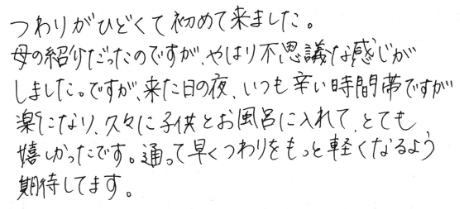 つわりがひどくて初めて来ました。
母の紹介だったのですが、やはり不思議な感じが
しました。ですが、来た日の夜、いつも辛い時間帯ですが
楽になり、久々に子供とお風呂に入れて、とても
嬉しかったです。通って早くつわりをもっと軽くなるよう
期待してます。